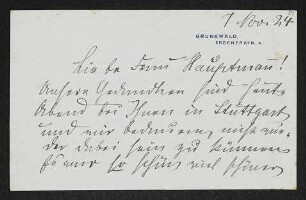 1 Nov. 24
GRUNEWALD,
Liebe Frau Hauptmann!
Unsere Gedanken sind heute
Abend bei Ihnen in Stuttgart
und wir bedauern, nicht wie-
der dabei sein zu können.
Es war so schön, viel schöner